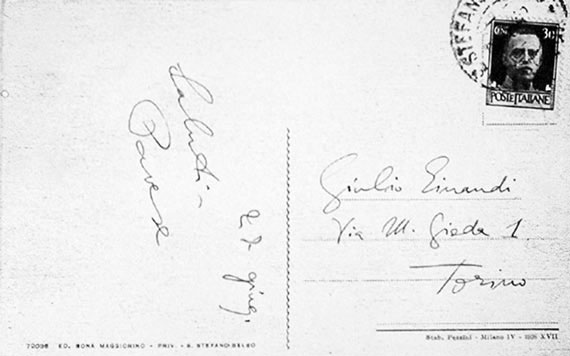 Saluti -
Pavese
27 giug.
STEFANO
30
POSTE ITALIANE
Giulio Einaudi
Via M. Gioda 1
Torino
ED. BONA MAGGIORINO - PRIV. - S. STEFANO BELBO
Stab. Pezzini - Milano IV - XVII